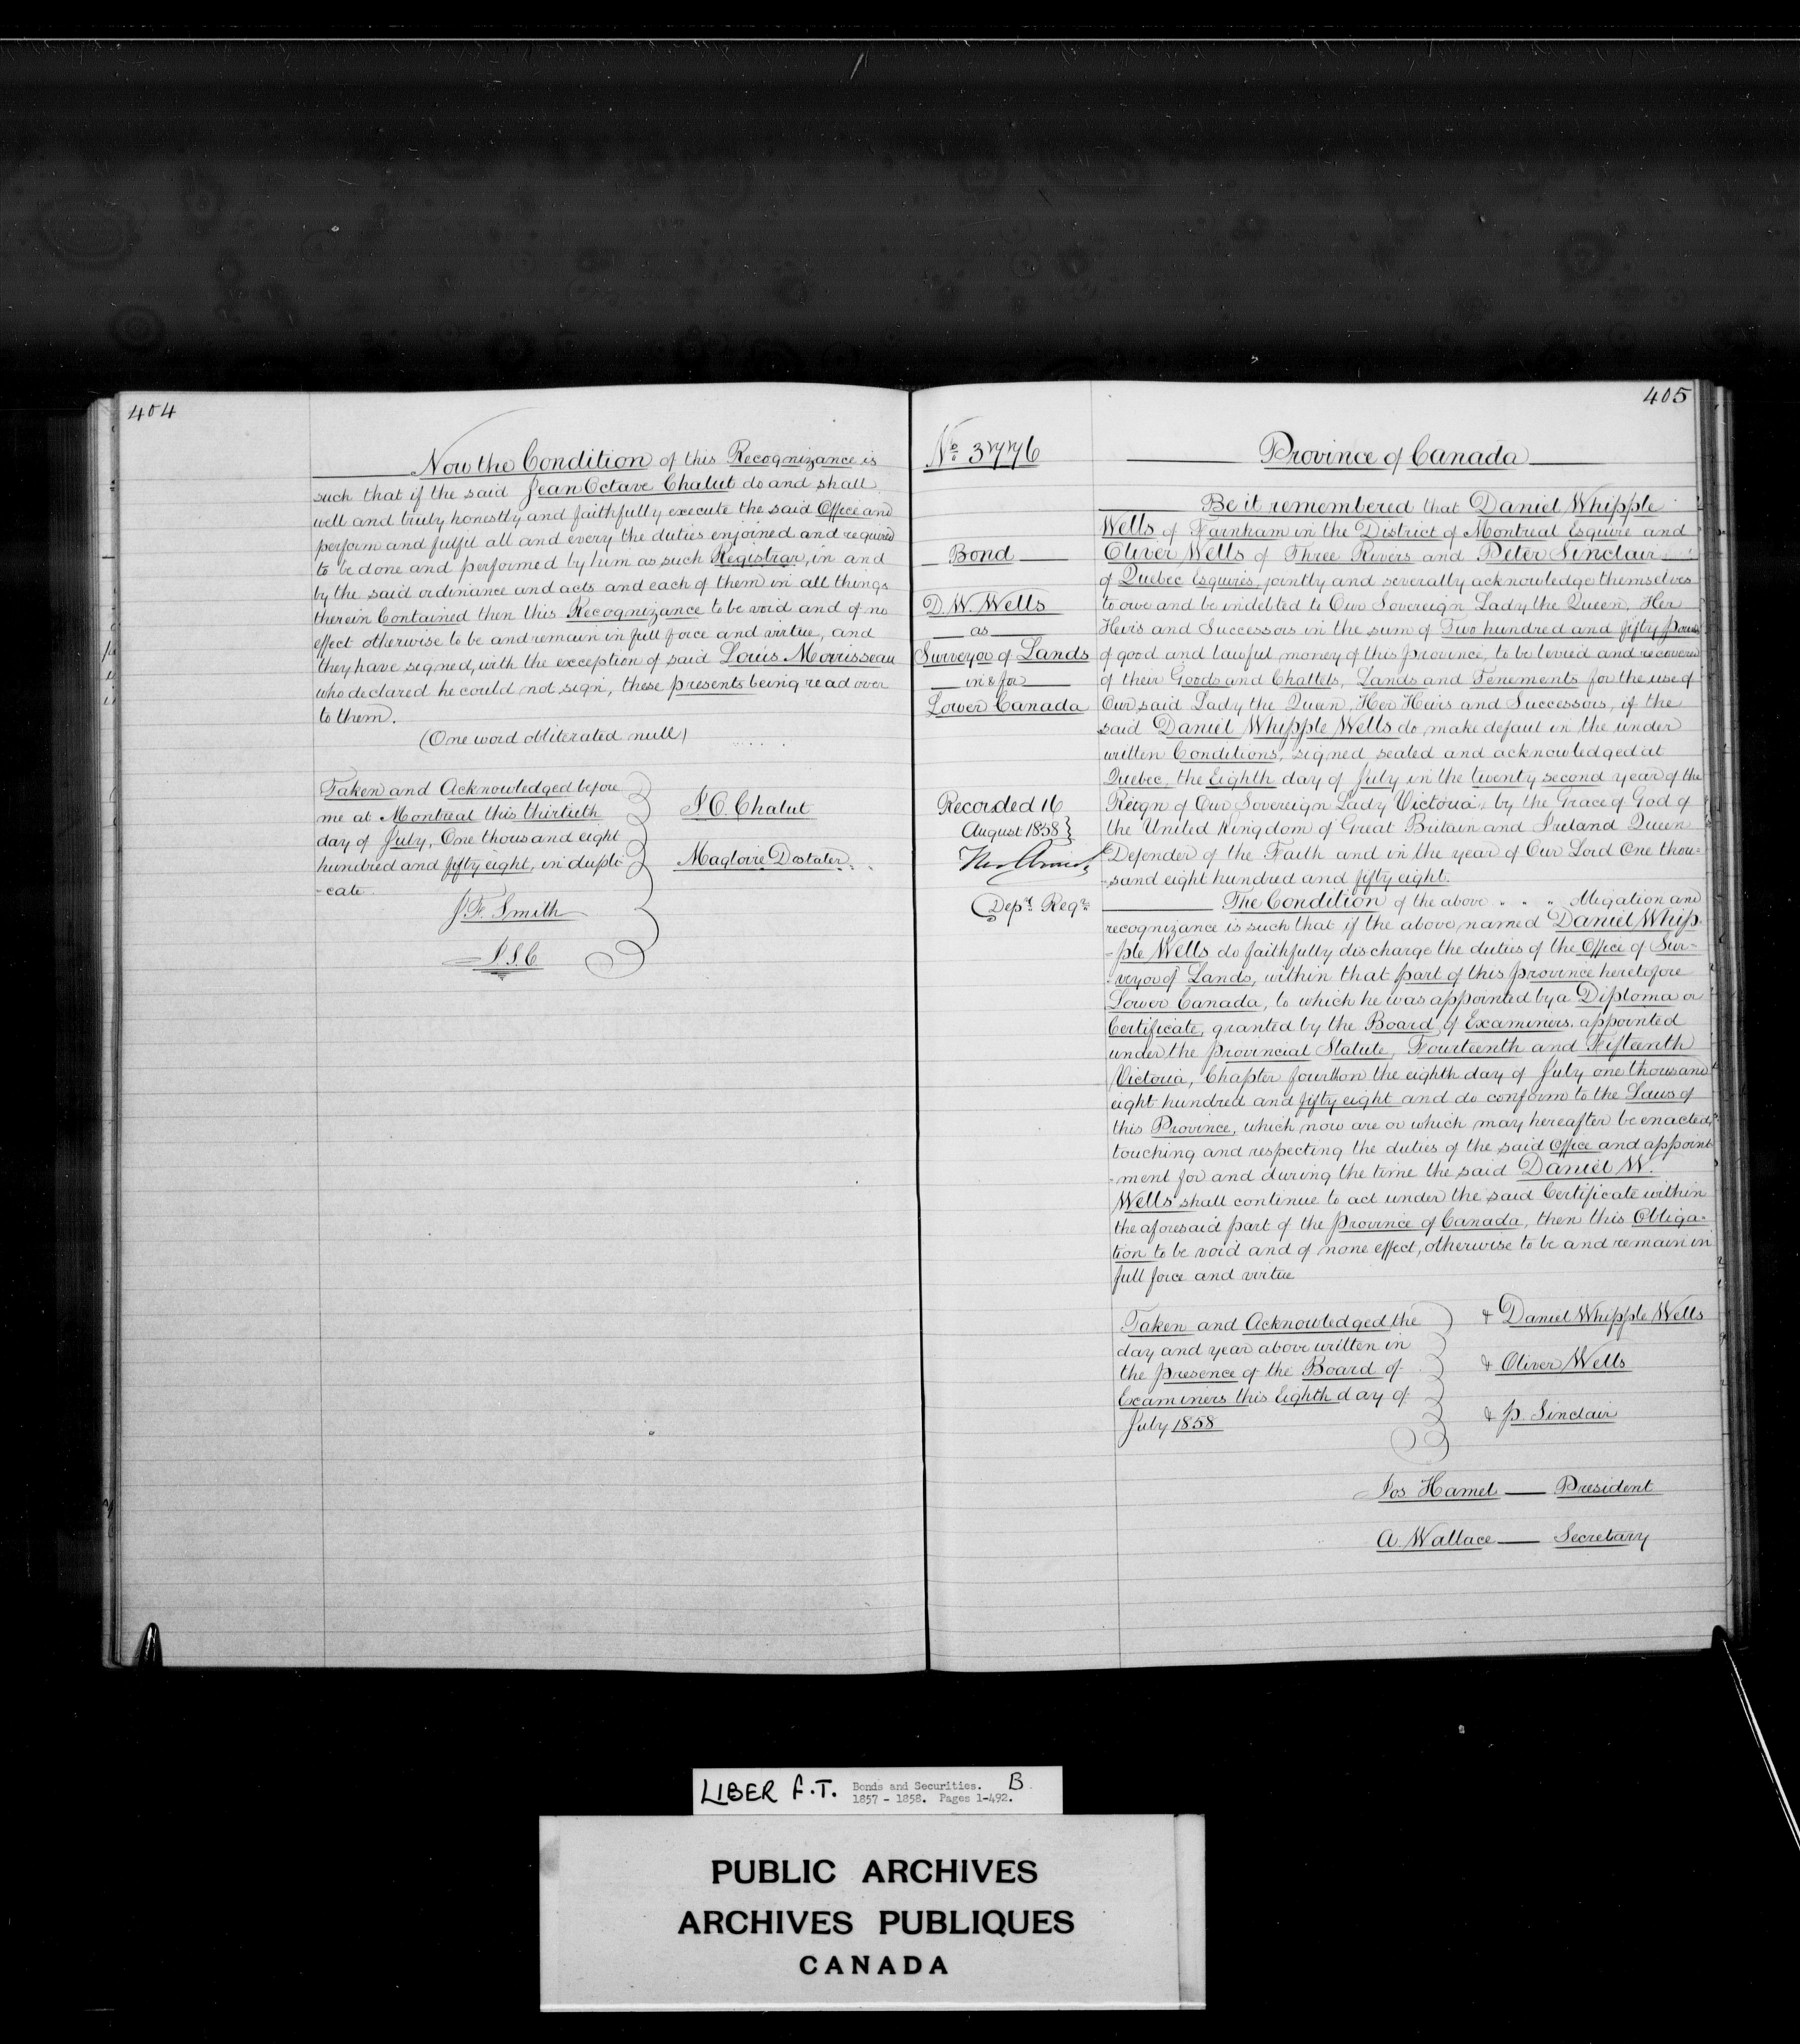 404
Now the Condition of this Recognizance is
such that if the said Jean Octave Chalut do and shall
well and truly honestly and faithfully execute the said Office and
perform and fulfil all and every the duties enjoined and required
to be done and performed by him as such Registrar, in and
by the said ordinance and acts and each of them in all things
therein Contained then this Recognizance to be void and of no
effect otherwise to be and remain in full force and virtue, and
they have signed, with the exception of said Louis Morrisseau
who declared he could not sign, these presents being read over
to them.
(One word obliterated null)
Taken and Acknowledged before
me at Montreal this thirtieth
day of July, One thousand eight
hundred and fifty eight, in dupli-
-cate
J. O. Chalut
Magloire Dostaler
J. F. Smith
J. S. C
405
No. 3776
Bond
D. W. Wells
as
Surveyor of Lands
in & for
Lower Canada
Recorded 16
August 1858
Depy. Regr.
Province of Canada
Be it remembered that Daniel Whipple
Wells of Farnham in the District of Montreal Esquire and
Oliver Wells of Three Rivers and Peter Sinclair
of Quebec Esquires, jointly and severally acknowledge themselves
to owe and be indebted to Our Sovereign Lady the Queen, Her
Heirs and Successors in the sum of Two hundred and fifty pounds
of good and lawful money of this province, to be levied and recovered
of their Goods and Chattels, Lands and Tenements for the use of
Our said Lady the Queen, Her Heirs and Successors, if the
said Daniel Whipple Wells do make defaut in the under
written Conditions, signed, sealed and acknowledged at
Quebec, the Eighth day of July in the twenty second year of the
Reign of Our Sovereign Lady Victoria, by the Grace of God of
the United Kingdom of Great Britain and Ireland Queen
Defender of the Faith and in the year of Our Lord One thou=
-sand eight hundred and fifty eight.
The Condition of the above " " " Obligation and
recognizance is such that if the above named Daniel Whip-
-ple Wells do faithfully discharge the duties of the Office of Sur-
-veyor of Lands, within that part of this province heretofore
Lower Canada, to which he was appointed by a Diploma or
Certificate, granted by the Board of Examiners, appointed
under the provincial Statute, Fourteenth and Fifteenth
Victoria, Chapter four, on the eighth day of July one thousand
eight hundred and fifty eight and do conform to the Laws of
this Province, which now are or which may hereafter be enacted,
touching and respecting the duties of the said Office and appoint
-ment for and during the time the said Daniel W.
Wells shall continue to act under the said Certificate within
the aforesaid part of the province of Canada, then this Obliga-
tion to be void and of none effect, otherwise to be and remain in
full force and virtue
Taken and Acknowledged the
day and year above written in
the presence of the Board of
Examiners this Eighth day of
July 1858
+ Daniel Whipple Wells
+ Oliver Wells
+ P. Sinclair
Jos Hamel — President
A. Wallace — Secretary
LIBER F.T. Bonds and Securities. B.
1857 - 1858. Pages 1-492.
PUBLIC ARCHIVES
ARCHIVES PUBLIQUES
CANADA